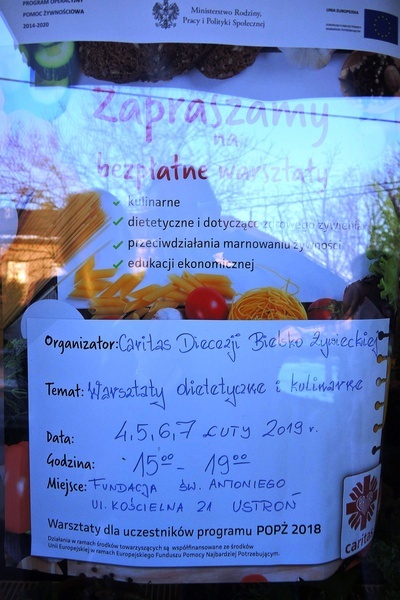 PROGRAM OPERACYJNY
POMOC ŻYWNOŚCIOWA
2014-2020
Ministerstwo Rodziny,
Pracy i Polityki Społecznej
UNIA EUROPEJSKA
Zapraszamy
na
bezpłatne warsztaty
kulinarne
dietetyczne i dotyczące zdrowego żywienia
przeciwdziałania marnowaniu żywności
edukacji ekonomicznej
Organizator: Caritas Diecezji Bielsko Żywieckiej
Temat: Warsztaty dietetyczne i kulinarne
Data: 4,5,6,7 LUTY 2019 r.
Godzina: 15⁰⁰ - 19⁰⁰
Miejsce: FUNDACJA ŚW. ANTONIEGO
UL. KOŚCIELNA 21 USTROŃ
Warsztaty dla uczestników programu POPŻ 2018
Działania w ramach środków towarzyszących są współfinansowane ze środków
Unii Europejskiej w ramach Europejskiego Funduszu Pomocy Najbardziej Potrzebującym.
caritas